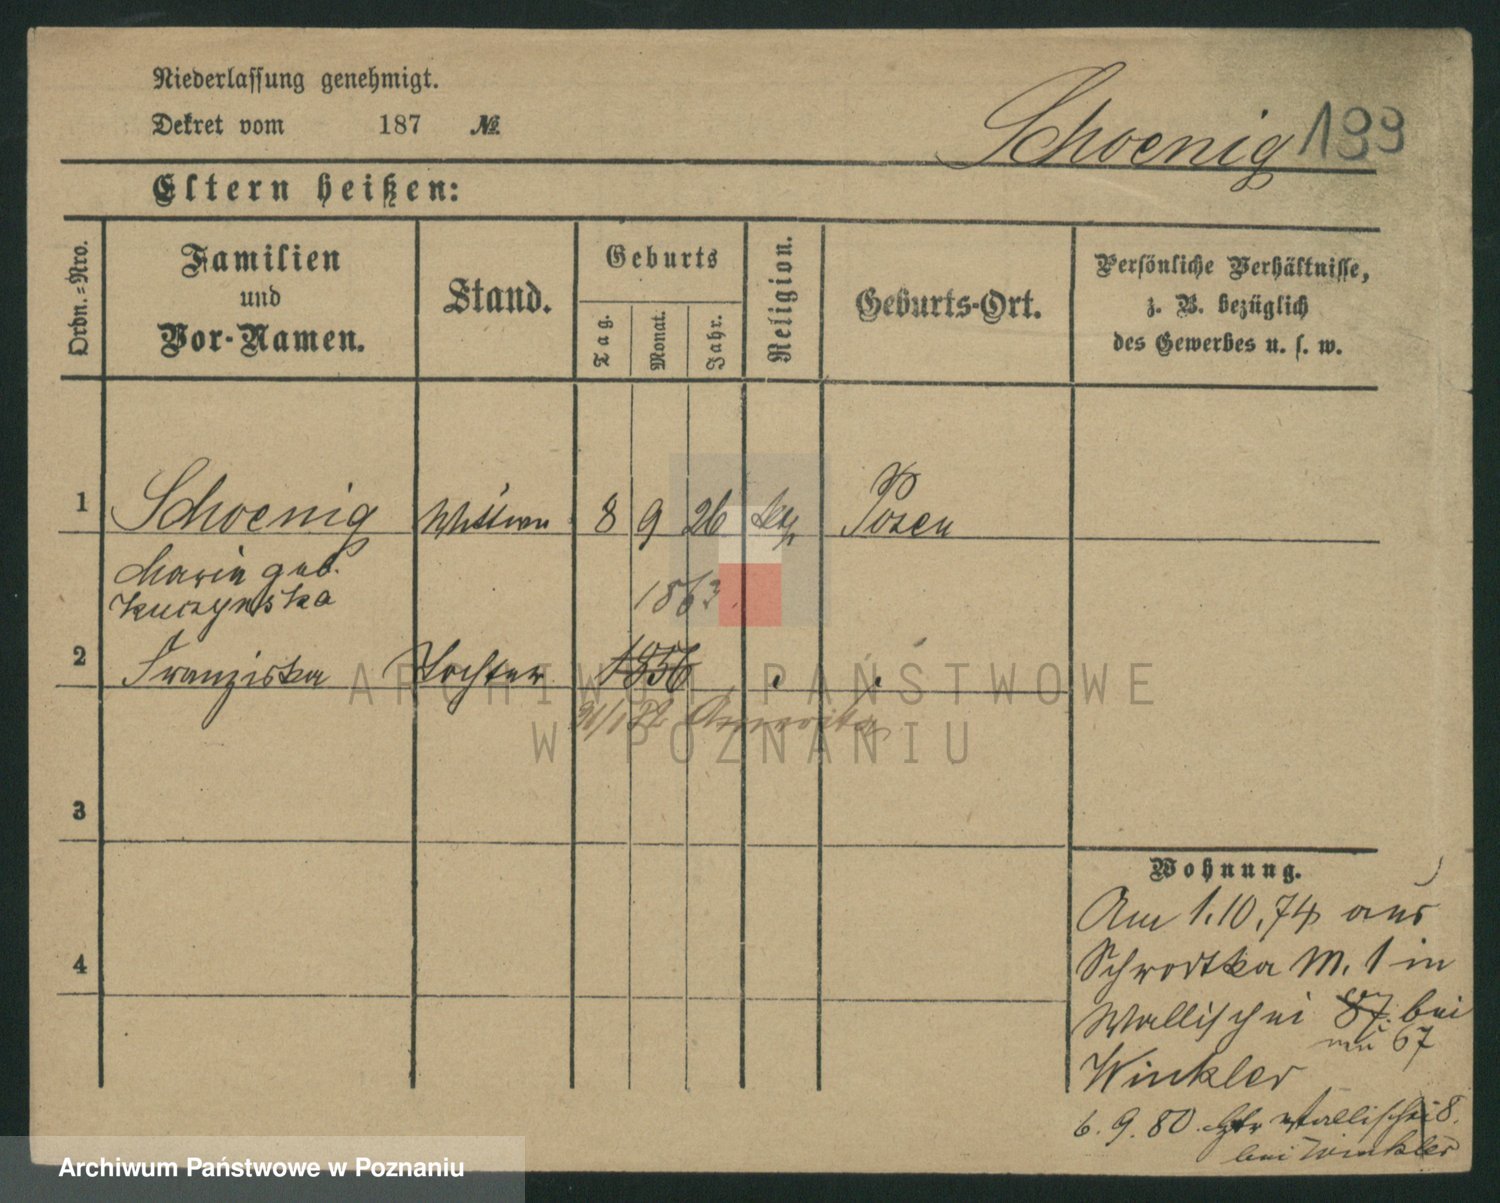 Niederlassung genehmigt.
Dekret vom 187 №
Schoenig 199
Eltern heißen:
Ordn.-Nro.
Familien
und
Vor-Namen.
Stand.
Geburts
Tag.
Monat.
Jahr.
Religion.
Geburts-Ort.
Persönliche Verhältnisse,
z. B. bezüglich
des Gewerbes u. s. w.
1 Schoenig Wittwe 8 9 26 Posen
Marie geb.
Kuczynska
1863
2 Franziska Tochter 1856
ARCHIWUM PAŃSTWOWE
W POZNANIU
3
4
Wohnung.
Am 1.10.74 aus
Schrodka M. 1 in
Wallischei 87. bei
67
Winkler
6. 9. 80 Wallischei 8.
bei Winkler
Archiwum Państwowe w Poznaniu